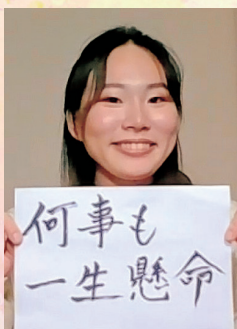 何事も
一生懸命